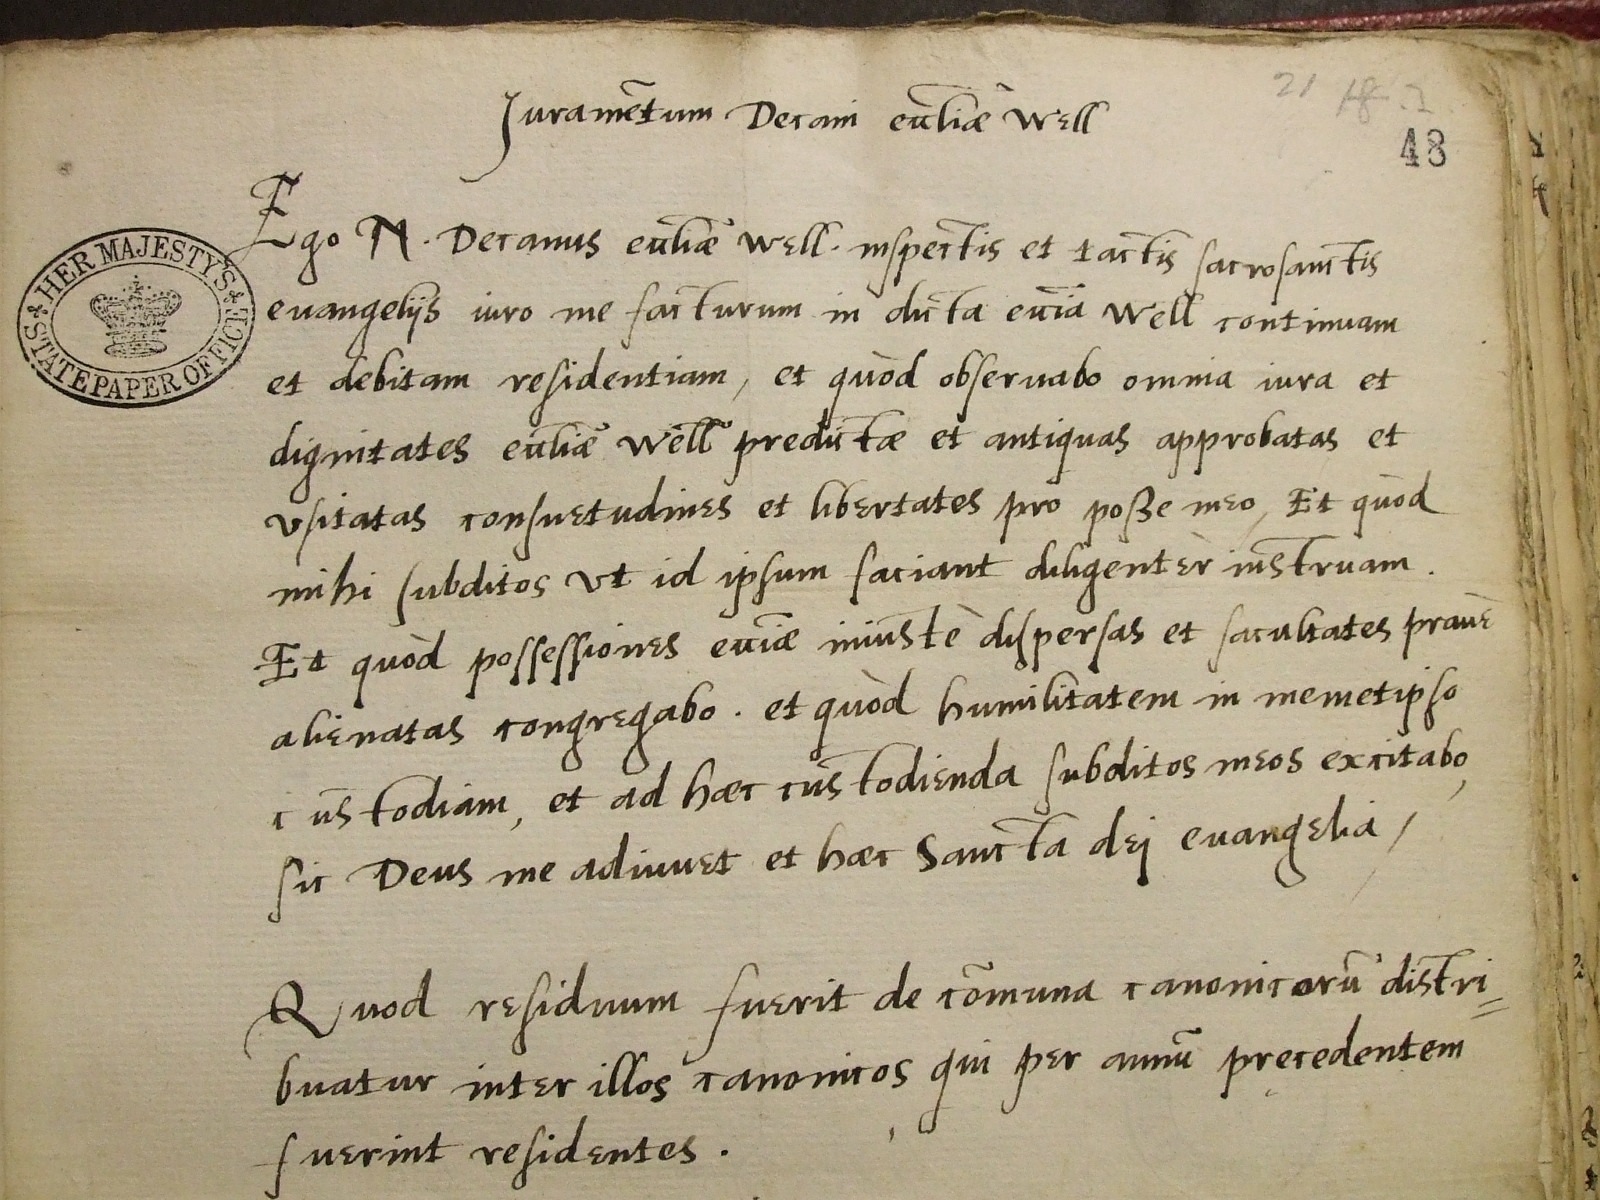 21 18. 1
48
Juramētum Decani eccliæ Well
HER MAJESTY'S STATE PAPER OFFICE
Ego N. Decanus eccliæ Well. inspectis et tactis sacrosanctis
euangelijs iuro me facturum in dicta eccia Well continuam
et debitam residentiam, et quòd obseruabo omnia iura et
dignitates eccliæ Well predictæ et antiquas approbatas et
vsitatas consuetudines et libertates pro posse meo, Et quòd
mihi subditos vt id ipsum faciant diligentèr instruam.
Et quòd possessiones ecciæ iniustè dispersas et facultates prauè
alienatas congregabo. et quòd humilitatem in memetipso
custodiam, et ad hæc custodienda subditos meos excitabo,
sic Deus me adiuuet et hæc Sancta dej euangelia /
Quod residuum fuerit de cōmuna canonicorū distri=
buatur inter illos canonicos qui per annū precedentem
fuerint residentes.